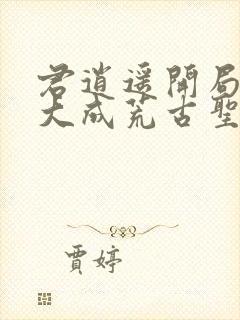 君逍遥開局
大成荒古聖
賈婷